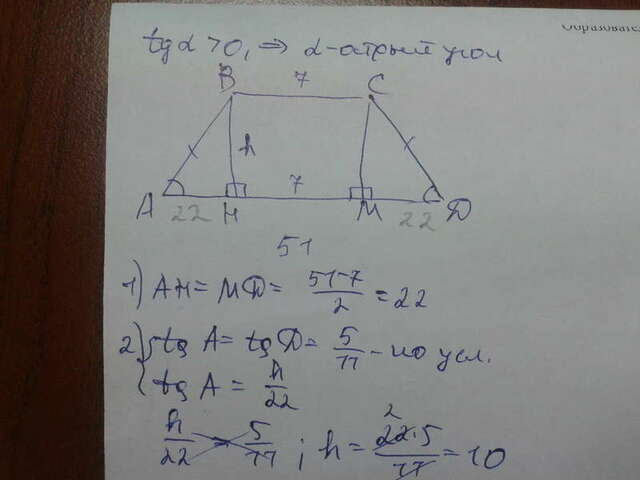 Образовате
tg α > 0, ⇒ α - острый угол
B 7 C
h
A 22 H 7 M 22 D
51
1) AH = MD = (51-7)/2 = 22
2) { tg A = tg D = 5/11 - по усл.
tg A = h/22
h/22 = 5/11 ; h = (22·5)/11 = 10
2